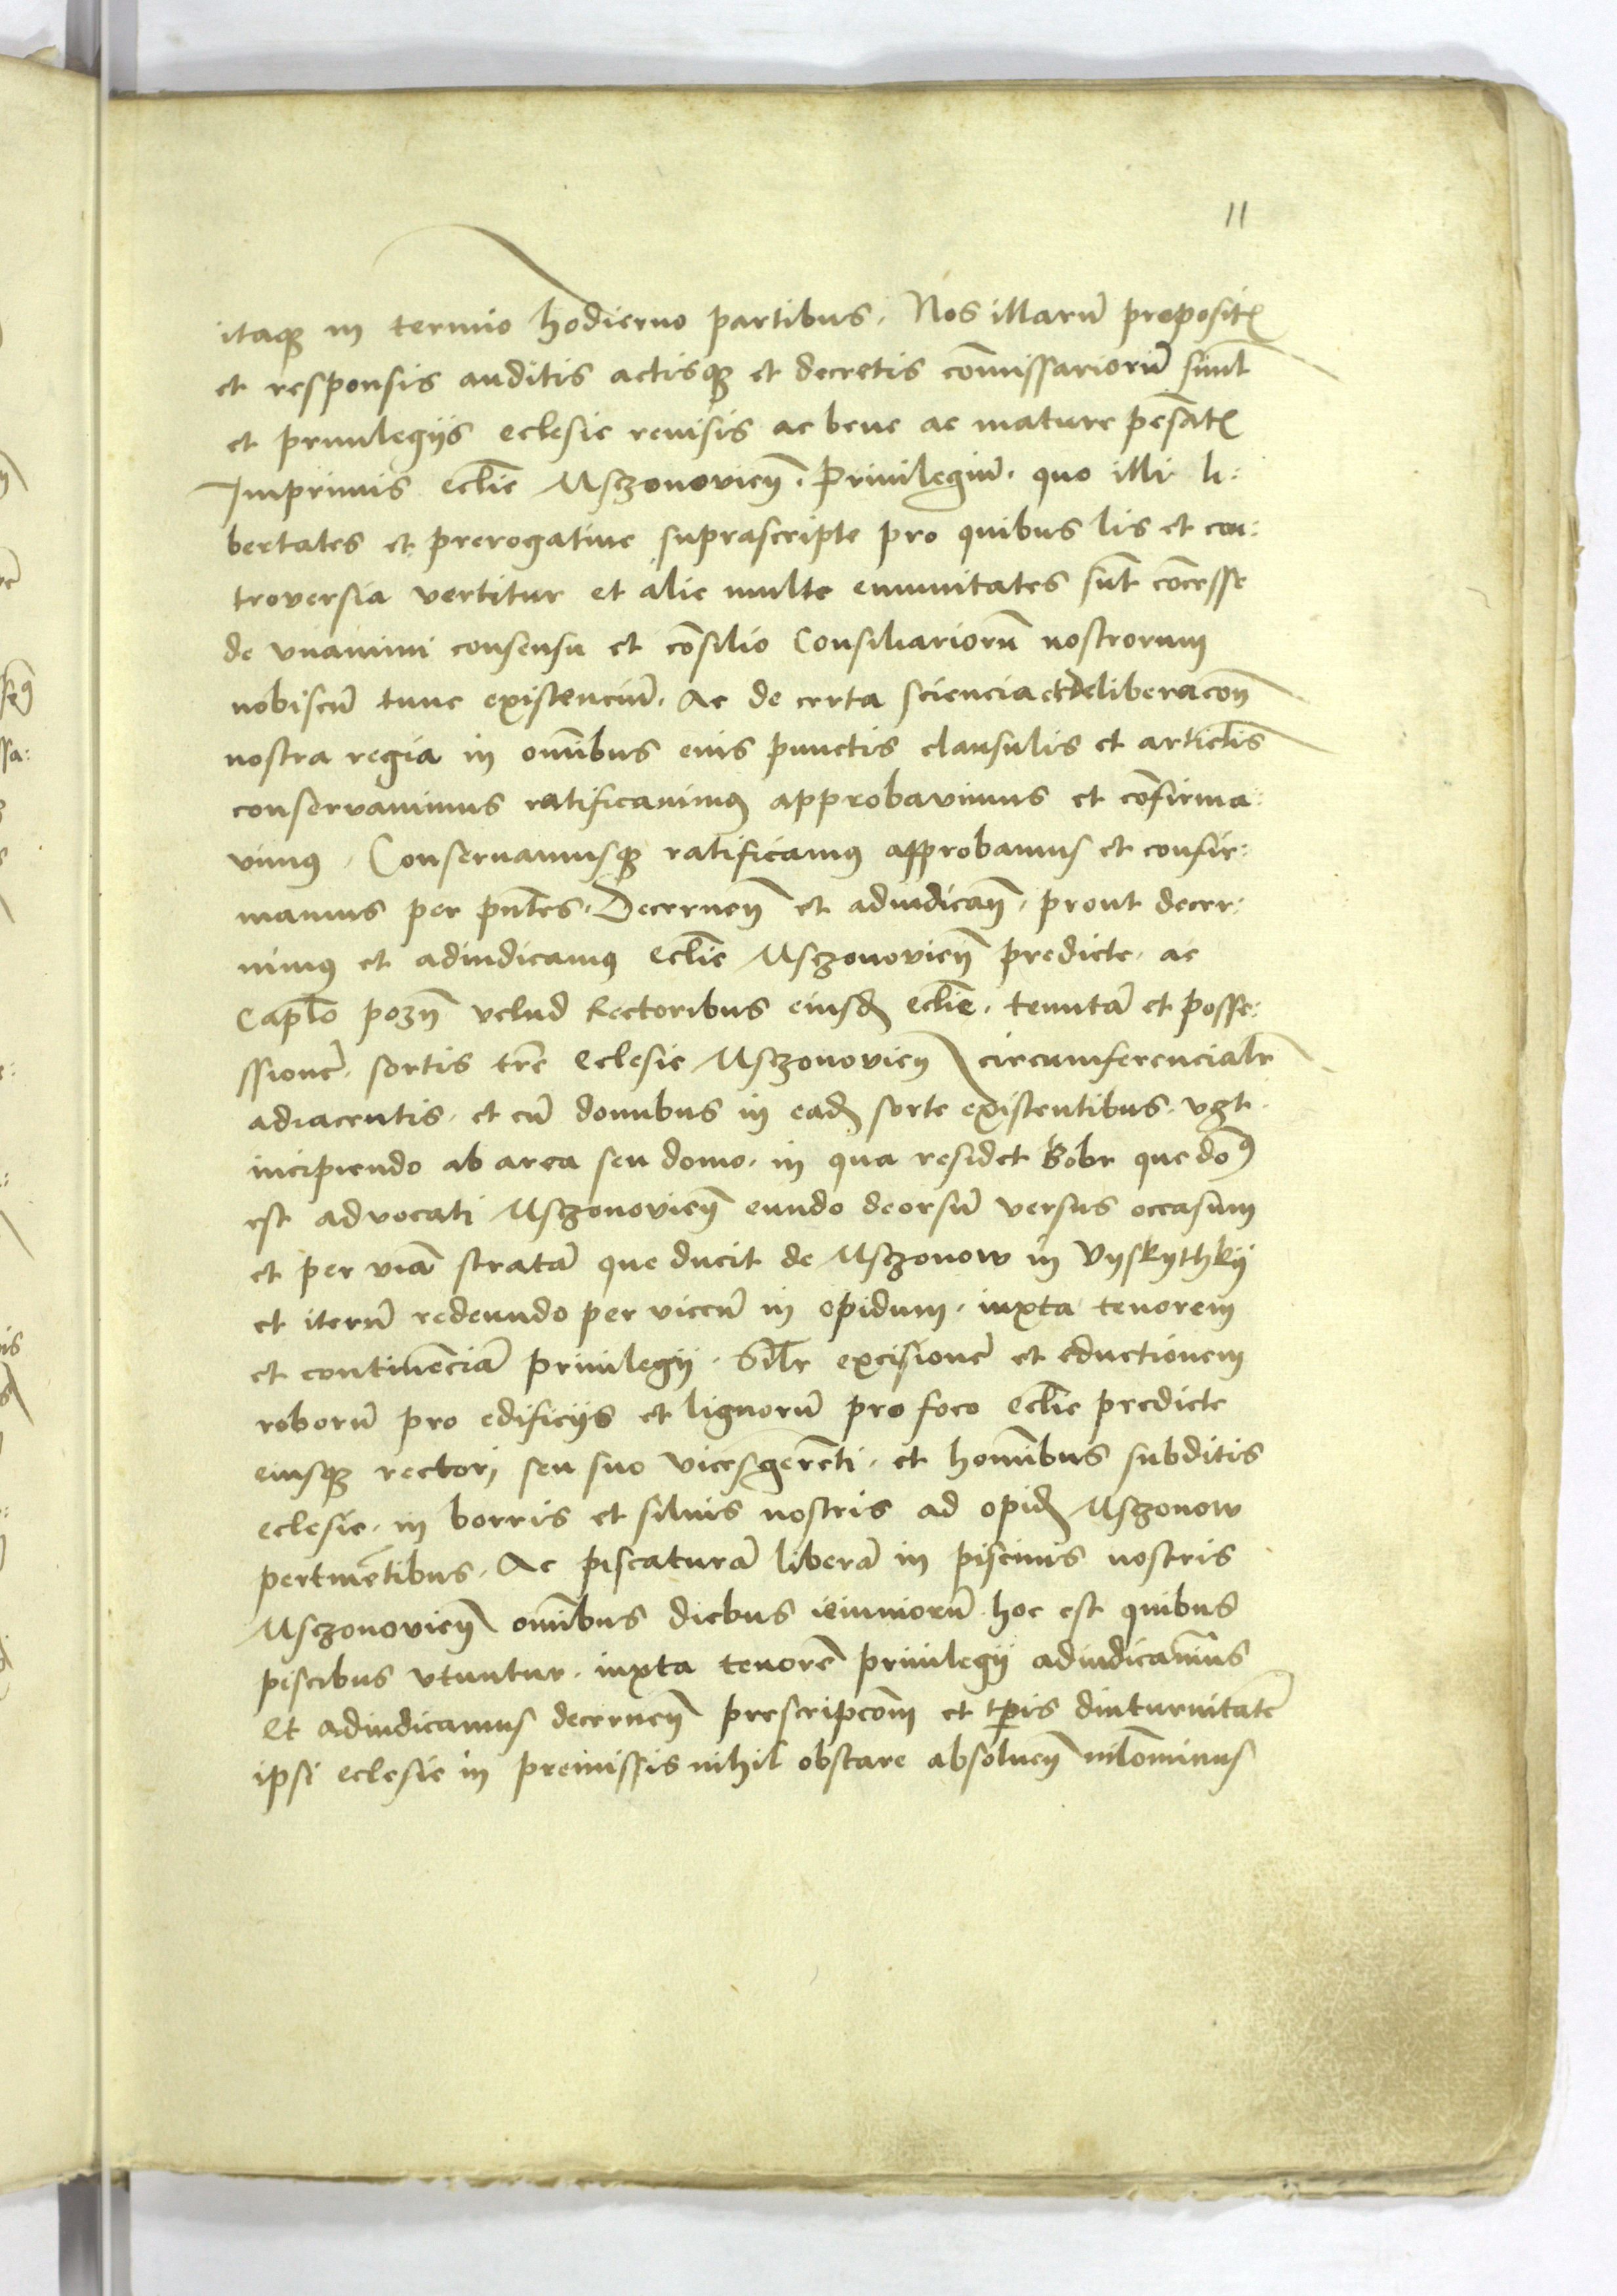 11
itaqȝ in termīo hodierno partibus. Nos illarū proposit͛
et responsis auditis actisqȝ et decretis com̄issariorū siml̄
et priuilegijs eclesie reuisis ac bene ac mature pēsat͛
Imprimis ecl̄ie Msczonovień. Priuilegiū. quo illi li:
bertates et prerogatiue suprascripte pro quibus lis et con:
troversia vertitur et alie multe emunitates sūt cōcesse
de vnanimi consensu et cōsilio Consiliariorū nostrorum
nobiscū tunc existenciū. Ac de certa sciencia et deliberacōn
nostra regia in om̄ibus eius punctis clausulis et articl̄is
conservauimus ratificauimꝰ approbavimus et cōfirma:
vimꝰ. Conseruamusqȝ ratificamꝰ approbamus et confir:
mamus per pn̄tes. Decerneń et adiudicań. prout decer:
nimꝰ et adiudicamꝰ ecl̄ie Msczonovień predicte. ac
Capl̄o pozń velud Rectoribus eiusd̄ ecl̄ie. tenutā et posse:
ssionē. sortis tr̄e Eclesie Msczonovień circumferencialr̄
adiacentis. et cū domibus in ead̄ sorte existentibus. vgt.
incipiendo ab area seu domo. in qua residet Bobr que domꝰ
est advocati Msczonovień eundo deorsū versus occasum
et per viā stratā que ducit de Msczonow in Vyskythky
et iterū redeundo per vicū in opidum. iuxta tenorem
et continēciā priuilegij. Sil̄r excisionē et eductionem
roborū pro edificijs et lignorū pro foco ecl̄ie predicte
eiusqȝ rectorj seu suo vicesgerēti. et homībus subditis
eclesie. in borris et siluis nostris ad opid̄ Msczonow
pertinētibus. Ac piscaturā liberā in piscinis nostris
Msczonovień om̄ibus diebus ieiuniorū. hoc est quibus
piscibus vtuntur. iuxta tenorē priuilegij adiudicauim̄us
Et adiudicamus decerneń prescripcōm et tp̄is diuturnitatē
ipsi eclesie in premissis nihil obstare absolueń nilōminus